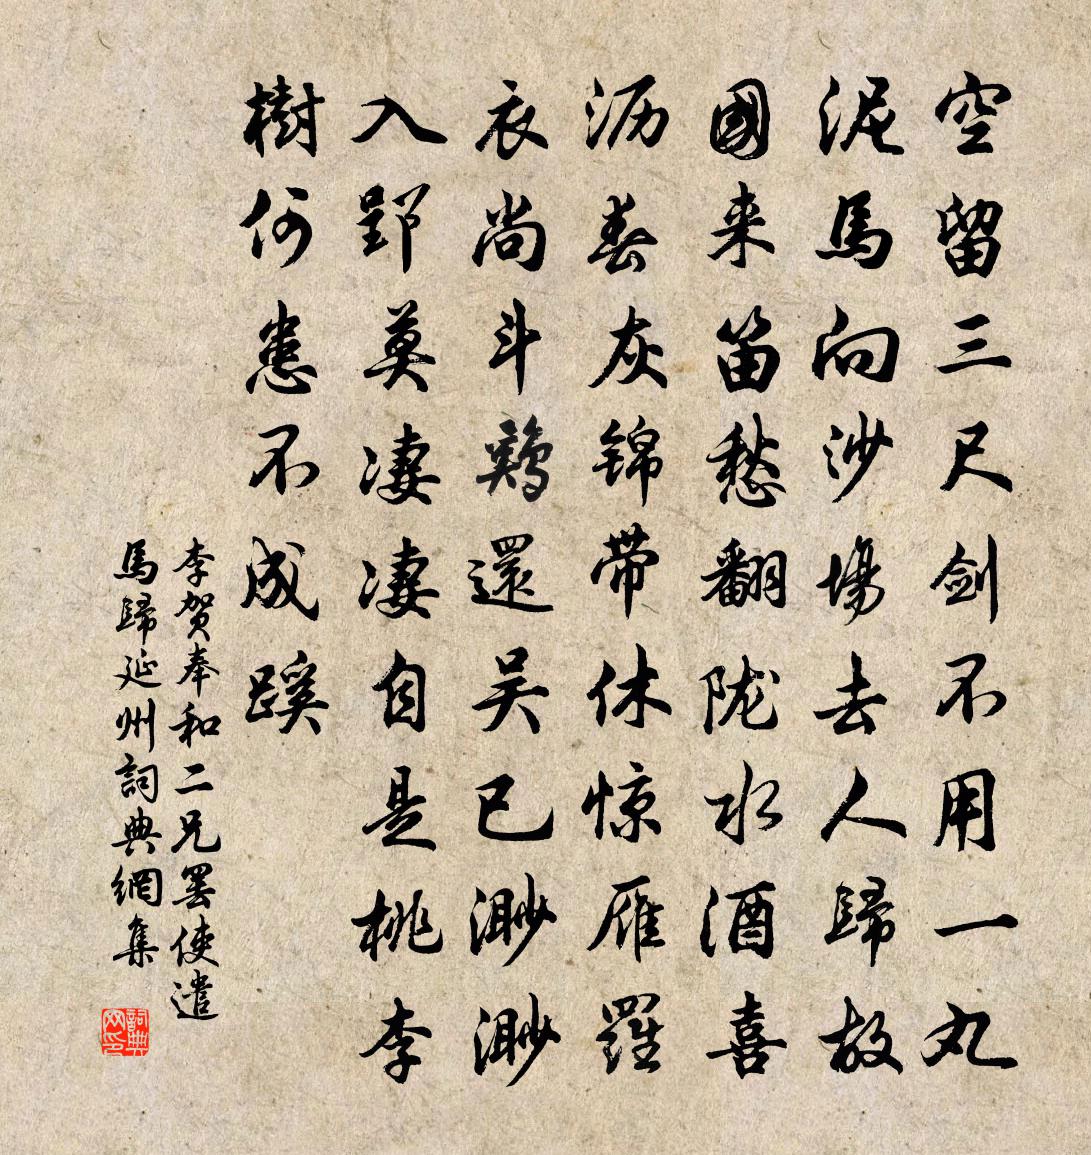 空留三尺剑不用一丸
泥馬向沙場去人歸故
國来笛愁翻陇水酒喜
沥春灰锦带休惊雁羅
衣尚斗鷄還吴已渺渺
入郢莫凄凄自是桃李
樹何患不成蹊
李贺奉和二兄罢使遣
馬歸延州詞典網集
詞典网印